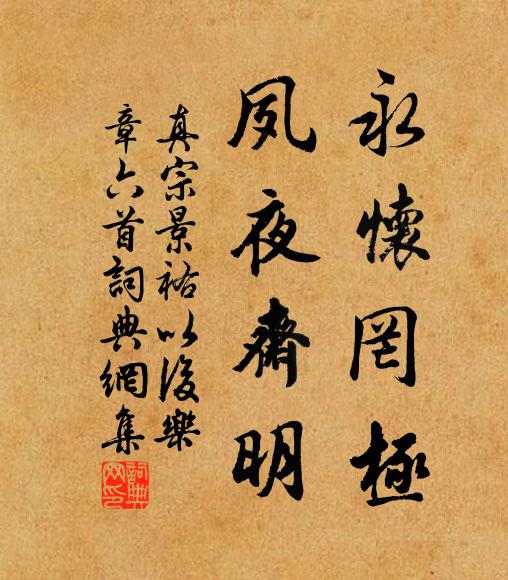 永懷罔極
夙夜齋明
真宗景祐以後樂
章六首詞典網集
詞典網印